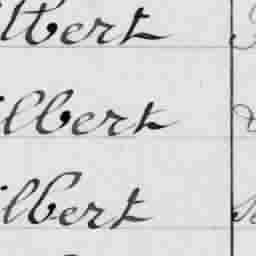 lbert
ilbert
ilbert